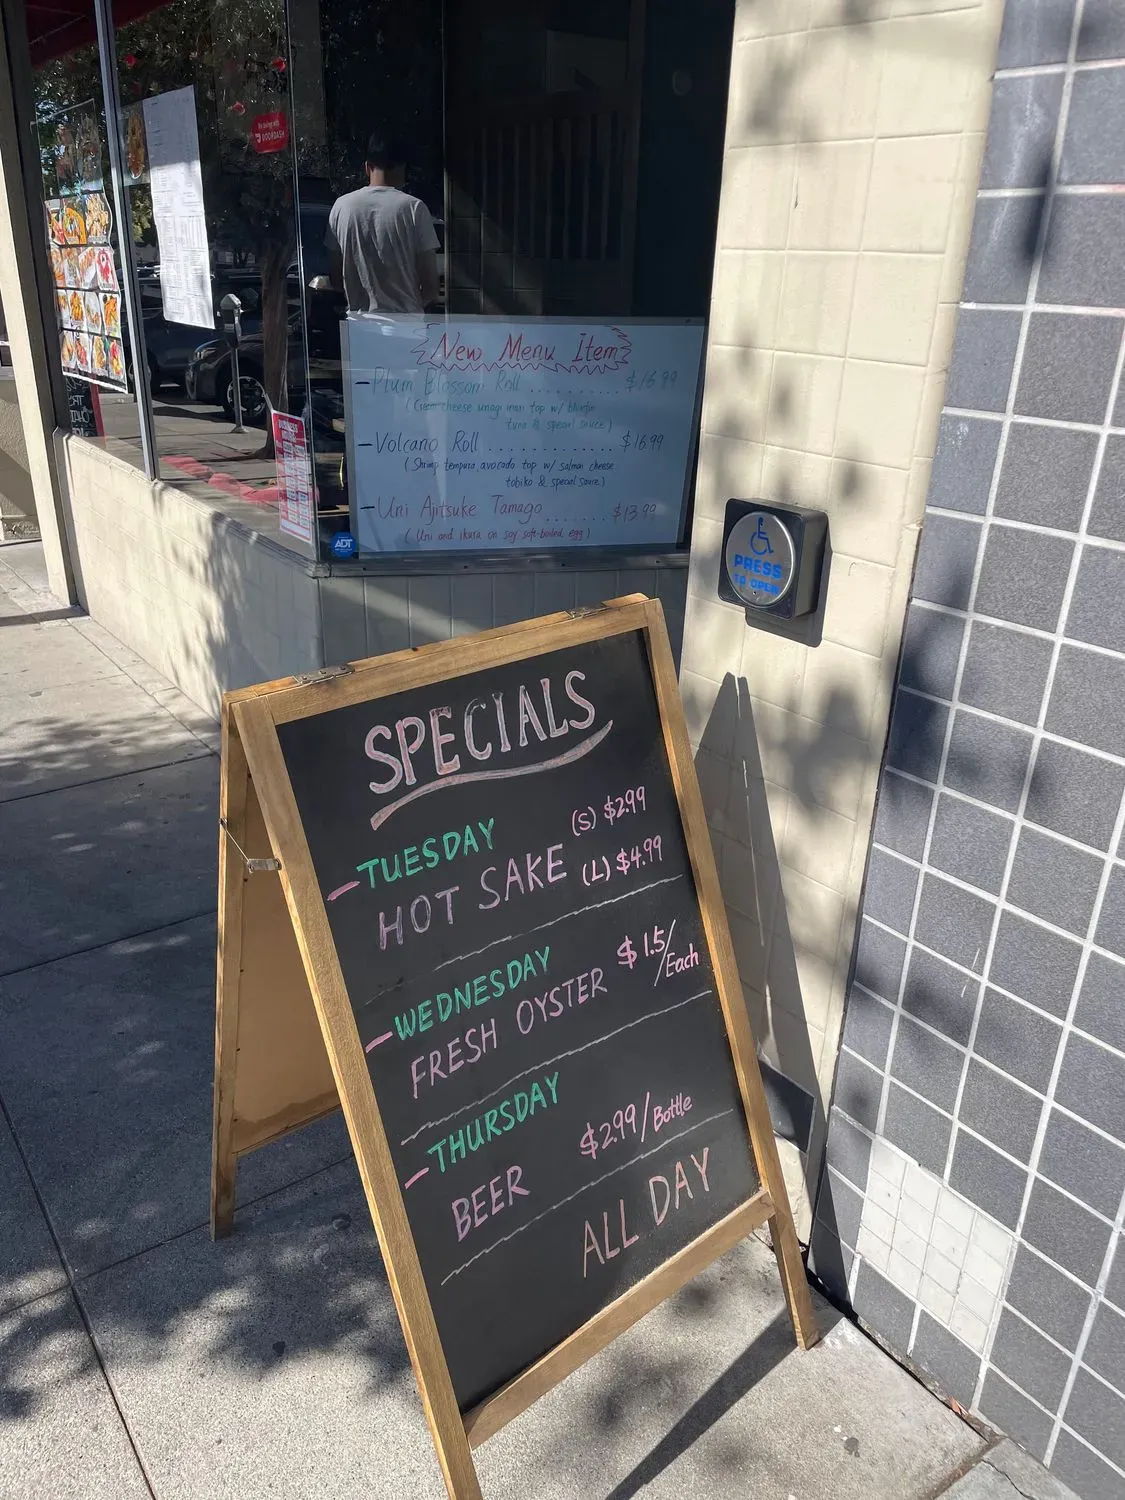 DOORDASH
New Menu Item
- Plum Blossom Roll ........ $16.99
(Cream cheese unagi inari top w/ bluefin
tuna & special sauce)
- Volcano Roll ............. $16.99
(Shrimp tempura, avocado top w/ salmon cheese
tobiko & special sauce)
- Uni Ajitsuke Tamago ....... $13.99
(Uni and ikura on soy soft-boiled egg)
ADT
PRESS
TO OPEN
SPECIALS
- TUESDAY (S) $2.99
HOT SAKE (L) $4.99
- WEDNESDAY $1.5/Each
FRESH OYSTER
- THURSDAY
BEER $2.99/Bottle
ALL DAY